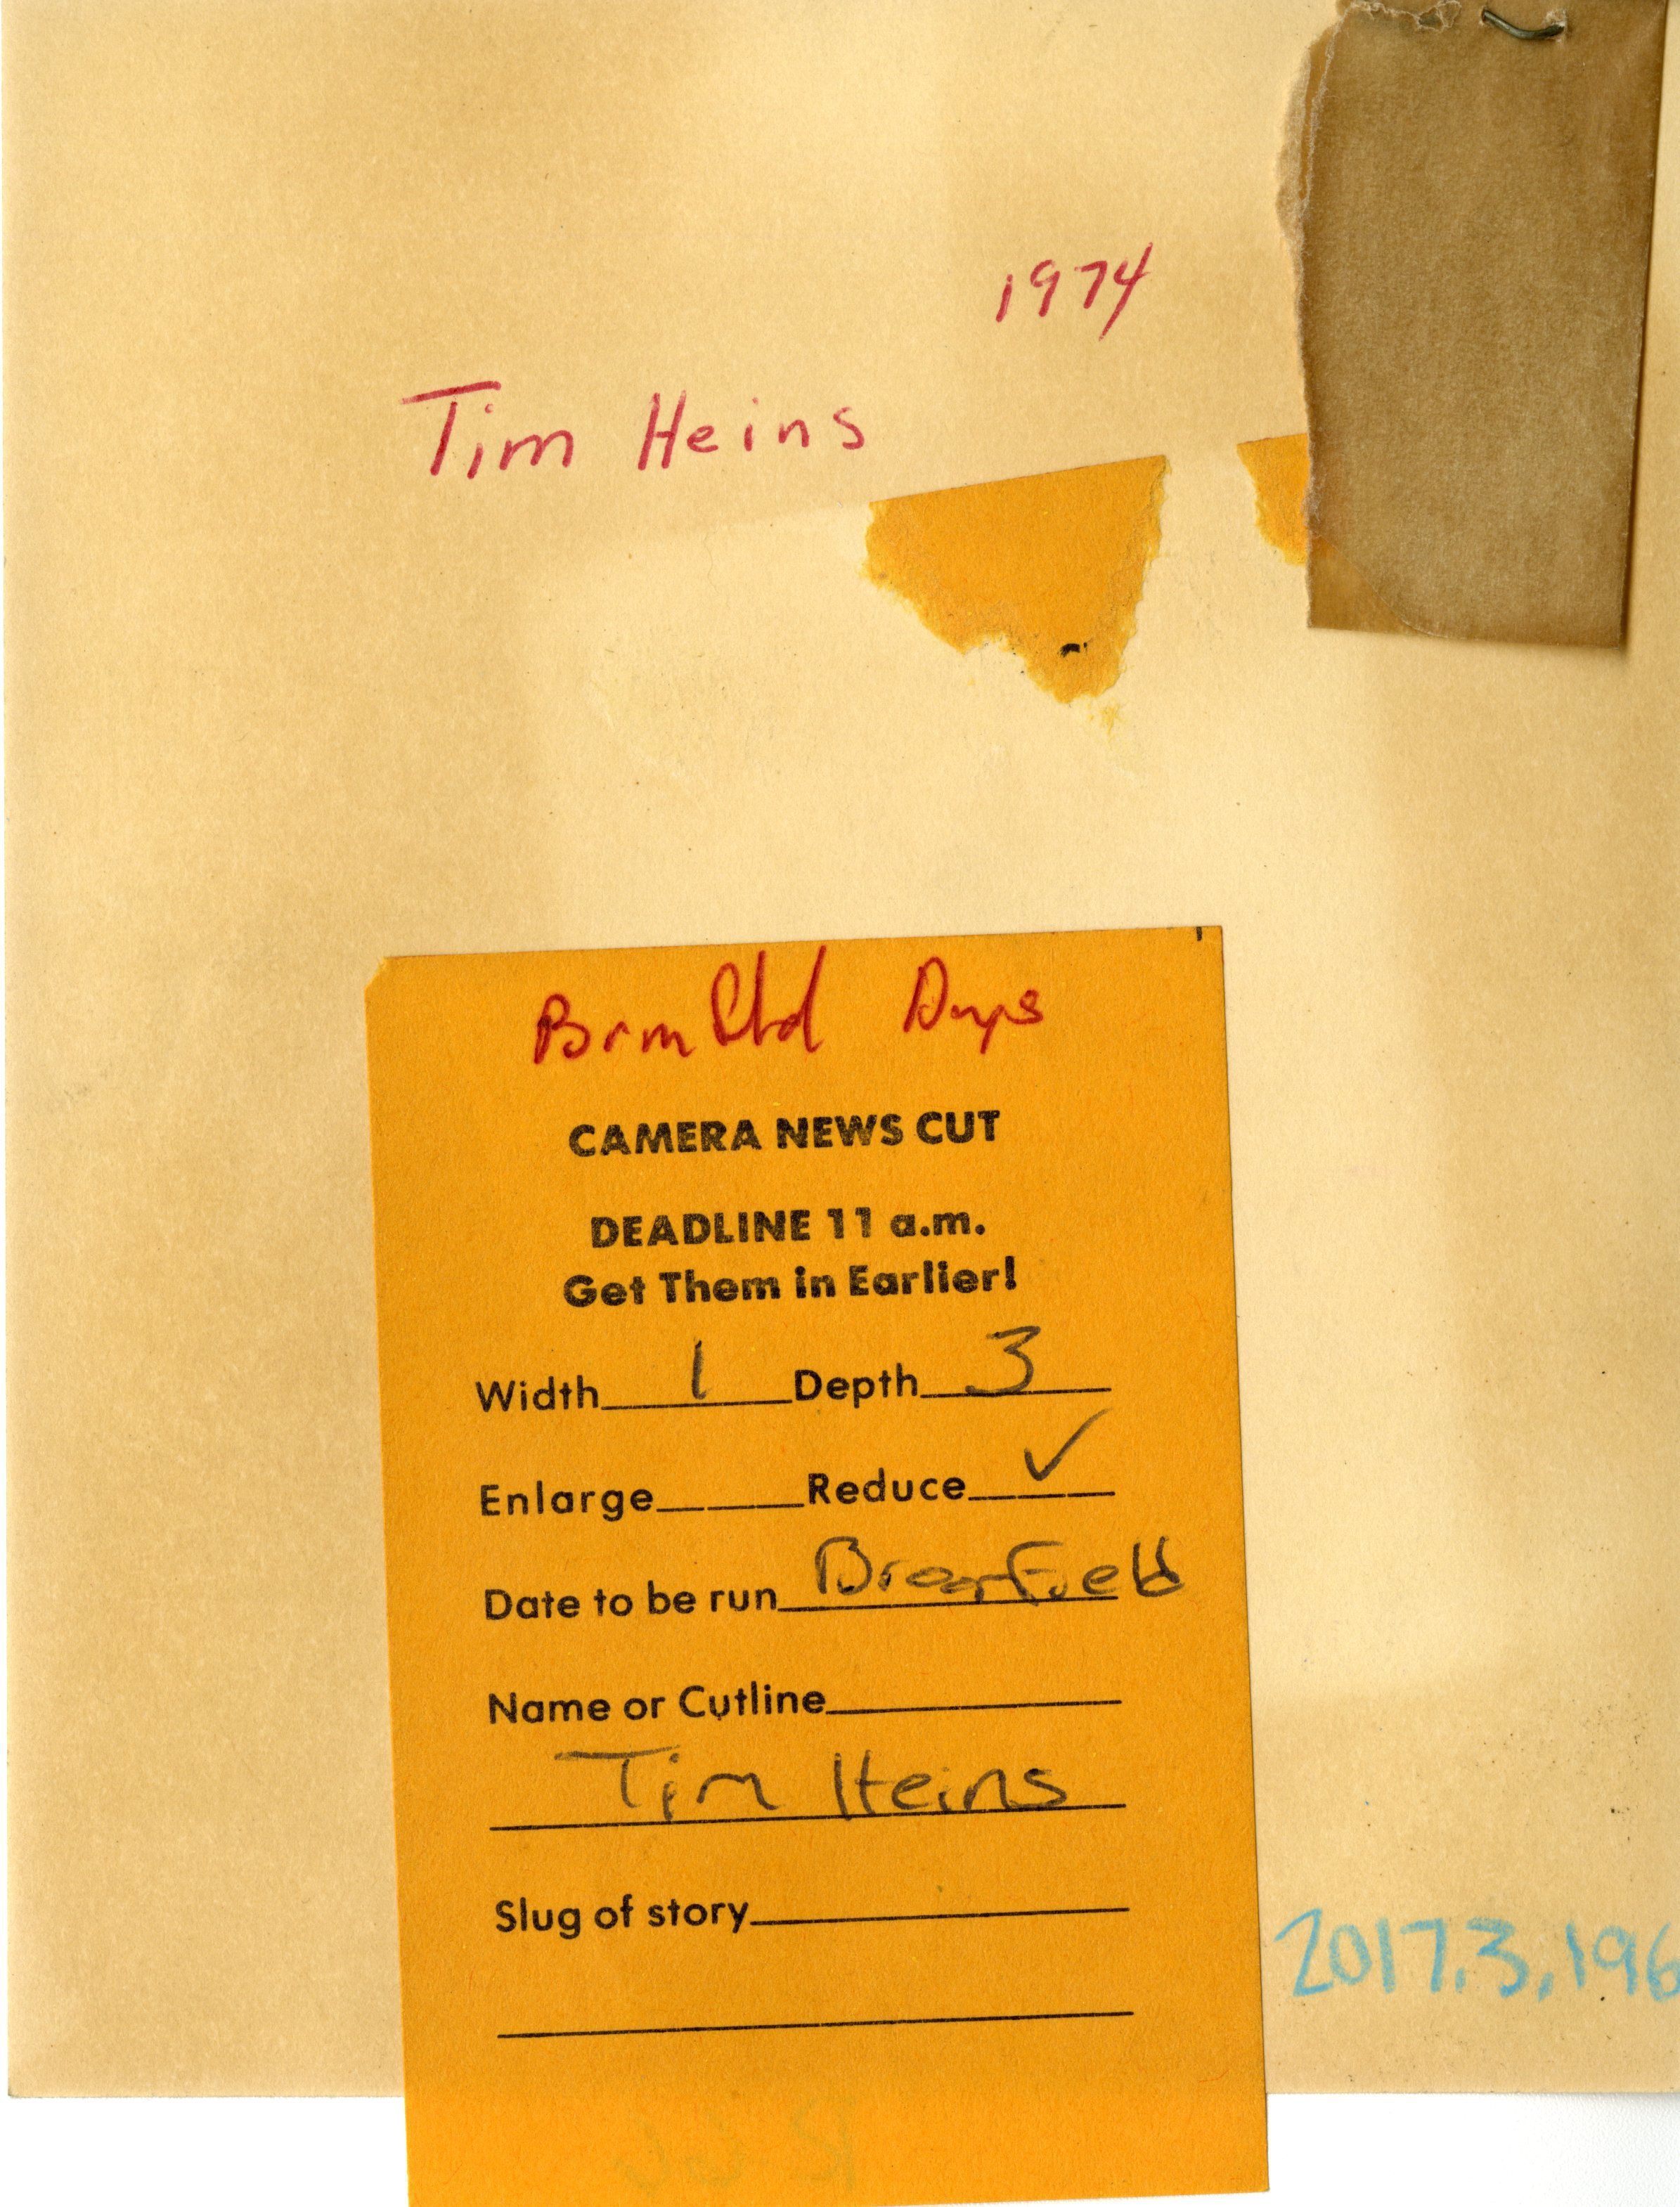 1974
Tim Heins
Brmfld Days
CAMERA NEWS CUT
DEADLINE 11 a.m.
Get Them in Earlier!
Width 1 Depth 3
Enlarge Reduce ✓
Date to be run Broomfield
Name or Cutline
Tim Heins
Slug of story
2017.3.196